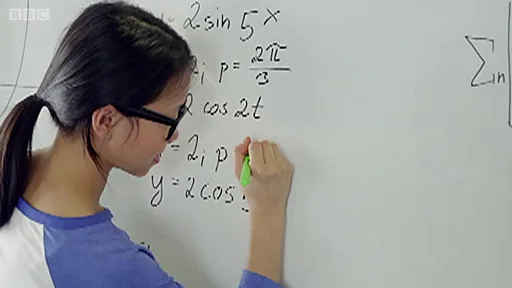 BBC
= 2 sin 5x
2, p = 2π/3
2 cos 2t
= 2, p
y = 2 cos
Σn